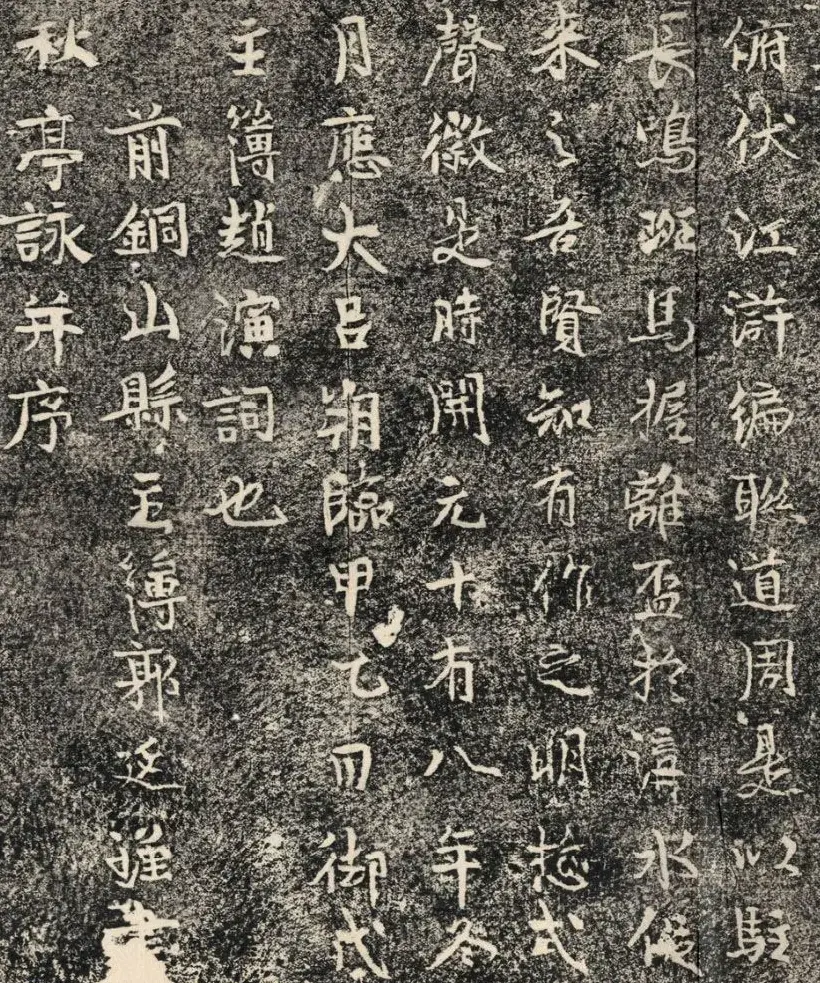 俯伏江滸編聯道周是以駐
長鳴班馬握離盃於涪水俟
来之吾賢知有作之明揔式
聲徽是時開元十有八年冬
月應大吕朔臨甲乙日御戊
主簿趙演詞也
前銅山縣主簿郭延瑾書
秋亭詠并序